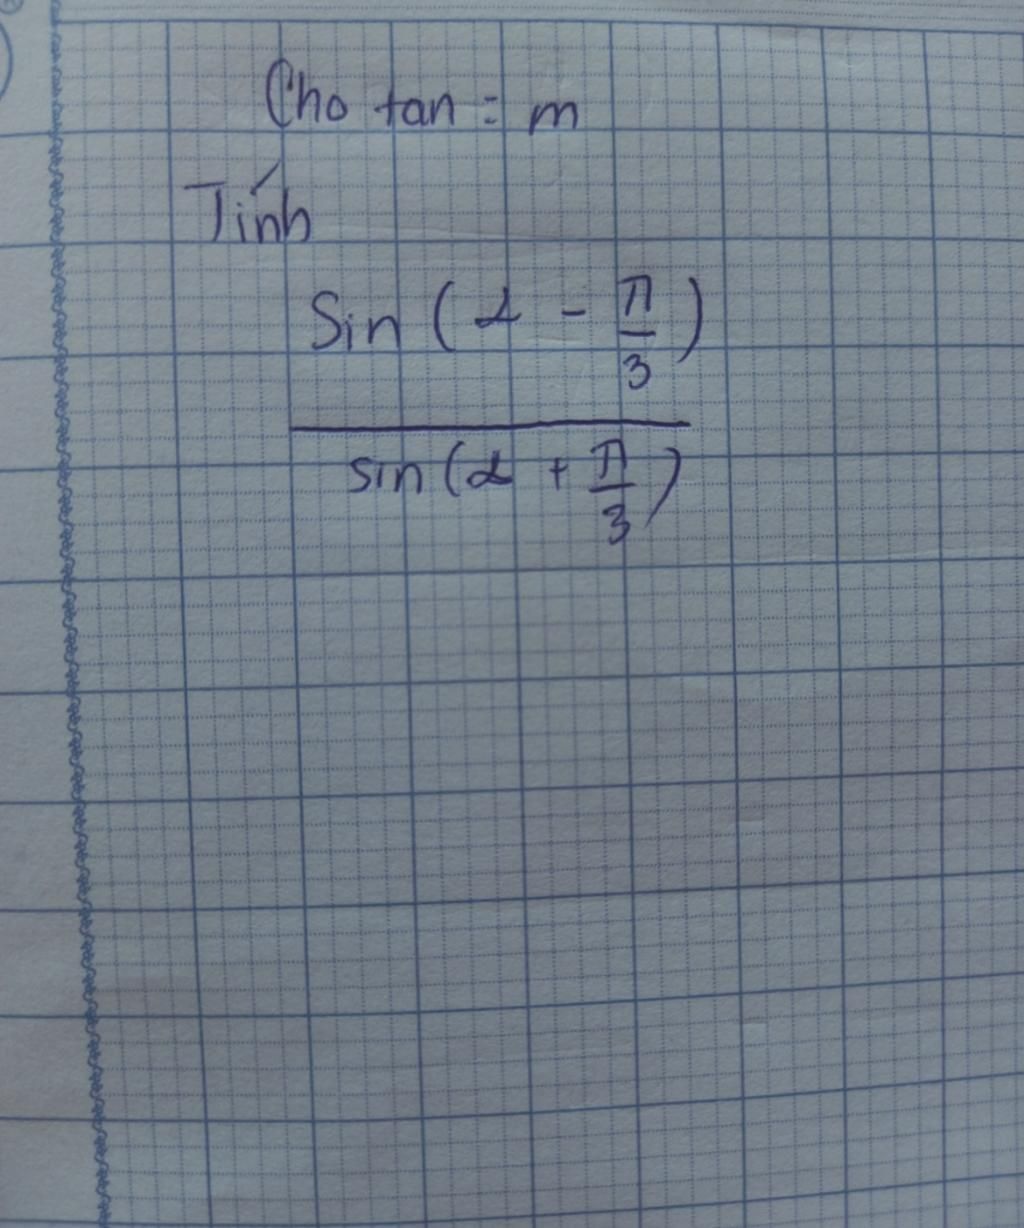 Cho tan = m
Tính
Sin ( α - π/3 )
sin ( α + π/3 )